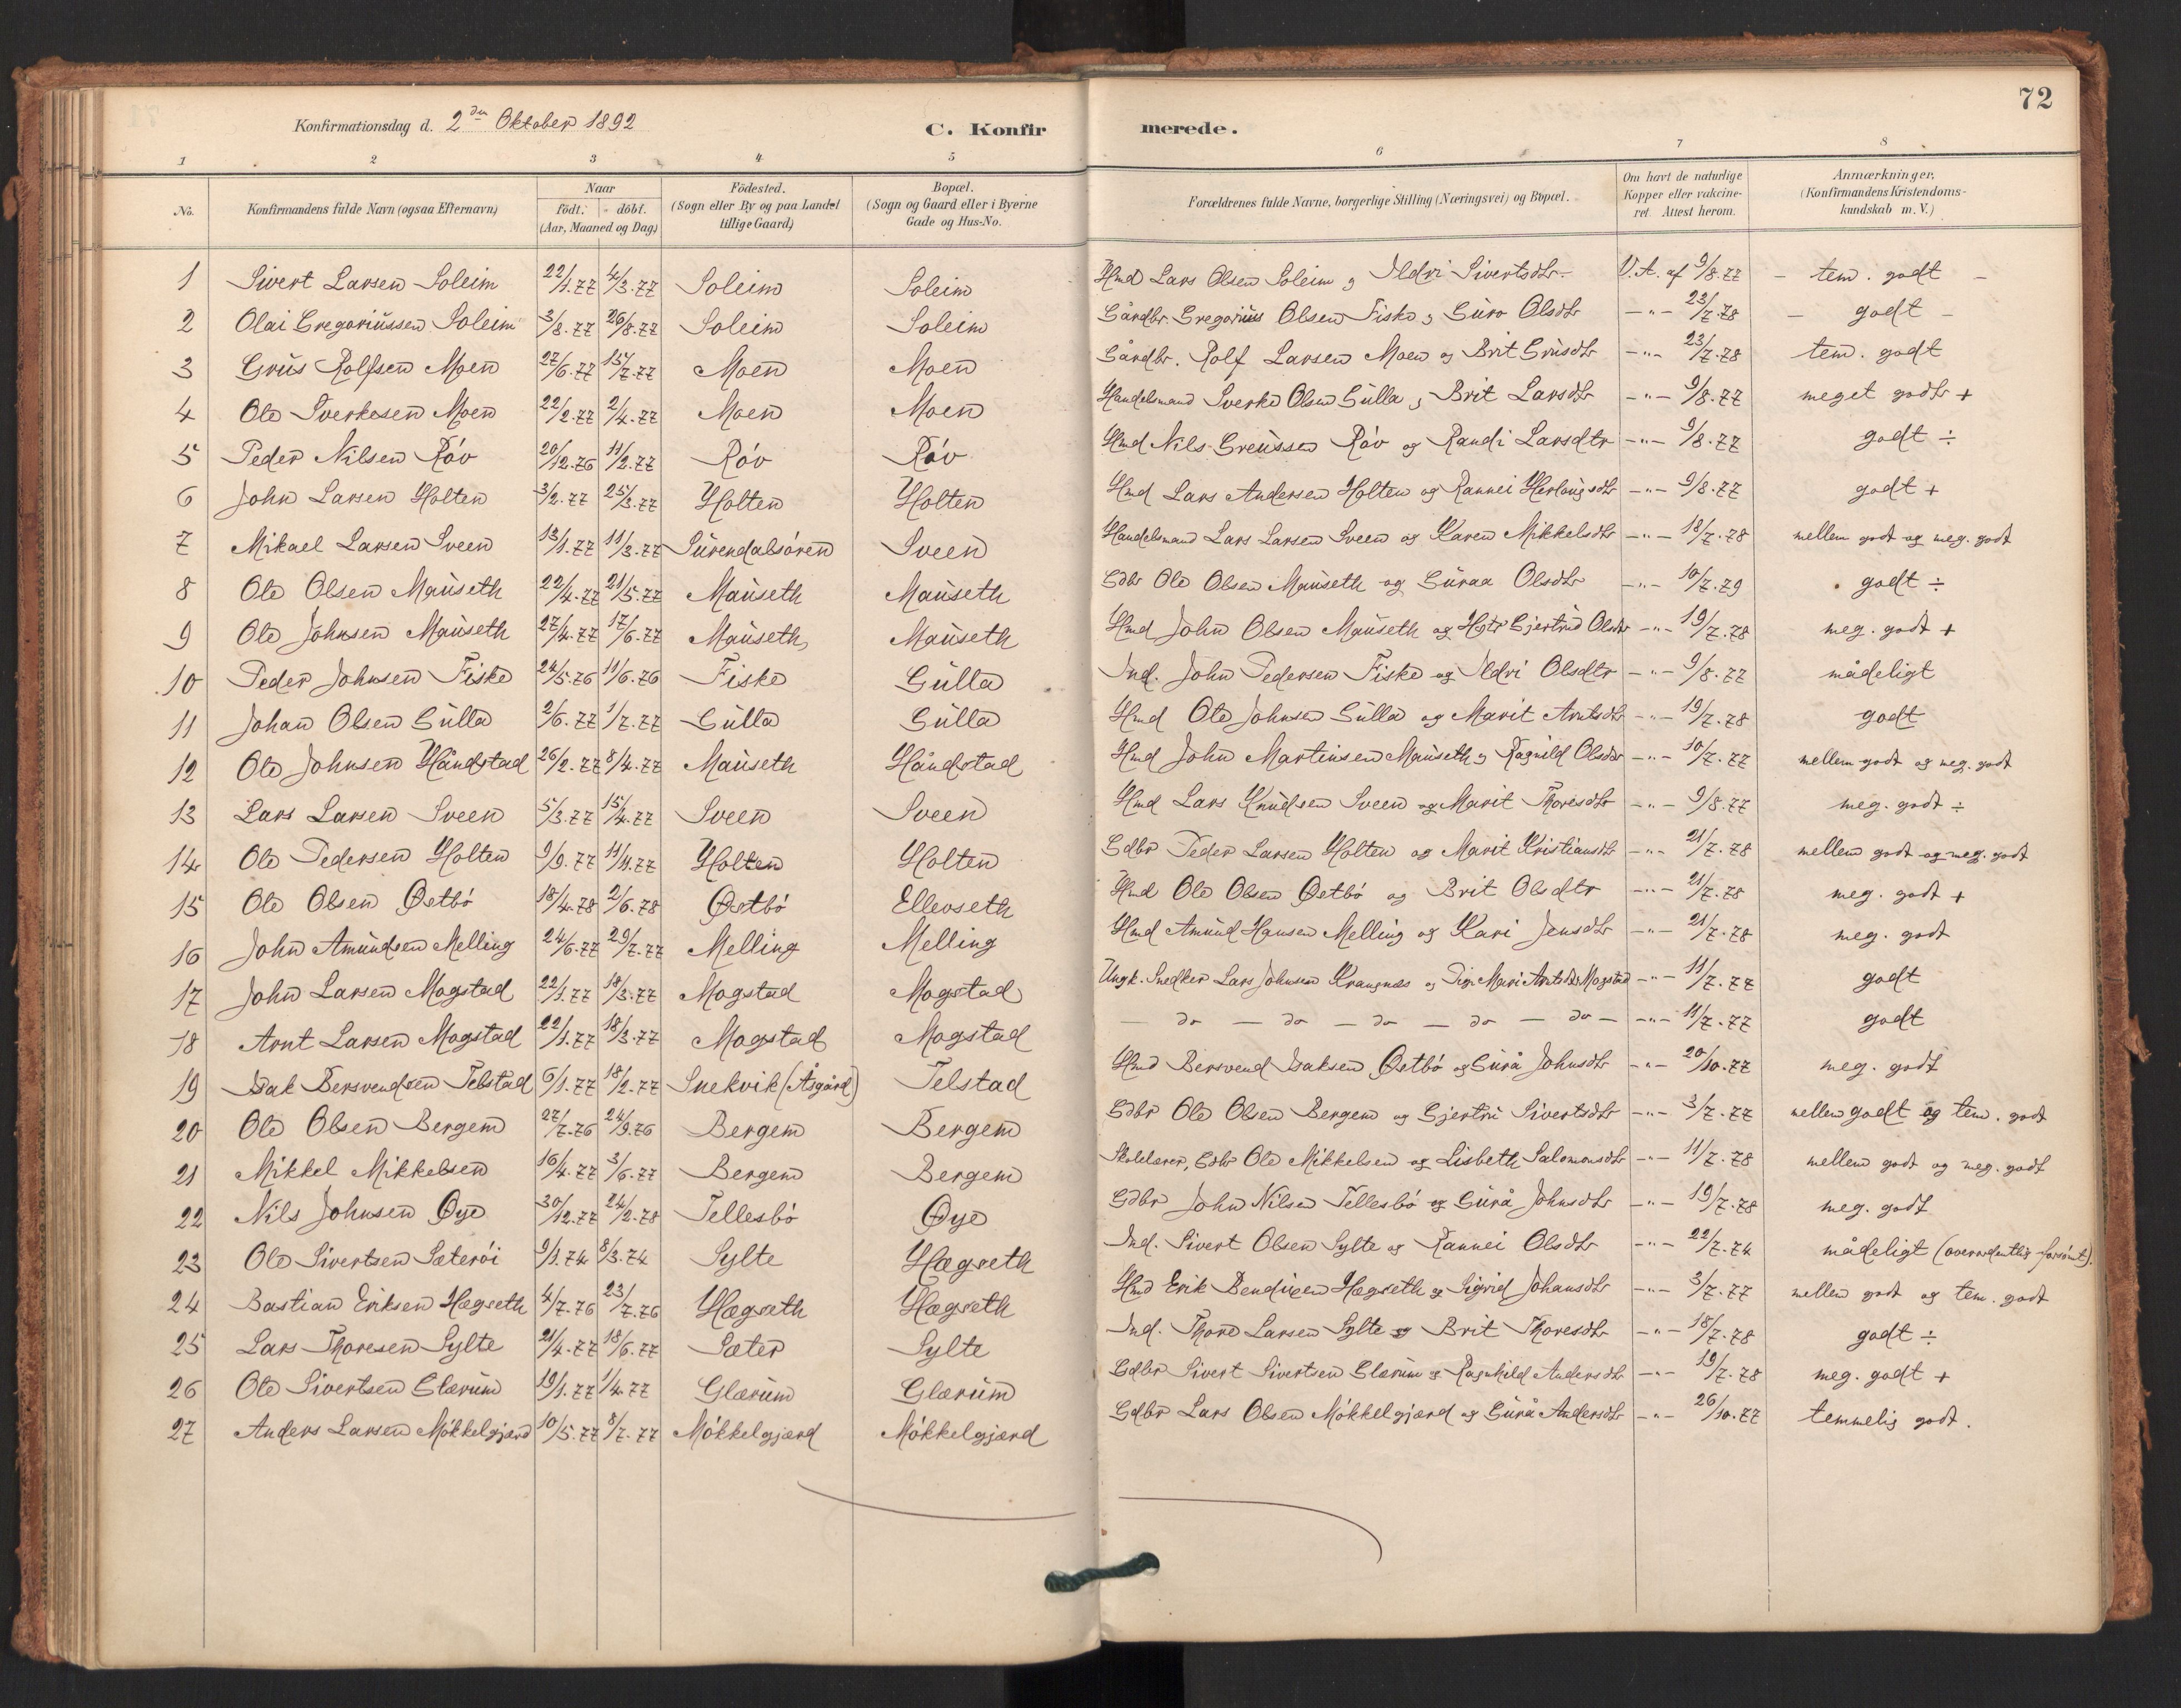 72
Konfirmationsdag d. 2den Oktober 1892 C. Konfirmerede.
1 2 3 4 5 6 7 8
No. Konfirmandens fulde Navn (ogsaa Efternavn) Naar födt. döbt. (Aar, Maaned og Dag) Födested. (Sogn eller By og paa Landet tillige Gaard) Bopæl. (Sogn og Gaard eller i Byerne Gade og Hus-No. Forældrenes fulde Navne, borgerlige Stilling (Næringsvei) og Bopæl. Om havt de naturlige Kopper eller vakcineret. Attest herom. Anmærkninger, (Konfirmandens Kristendomskundskab m. V.)
1 Sivert Larsen Soleim 22/1.77 4/3.77 Soleim Soleim Hmd Lars Olsen Soleim og Ildri Sivertsdtr V.A. af 9/8.77 – tem. godt –
2 Olai Gregoriussen Soleim 3/8.77 26/8.77 Soleim Soleim Gårdbr. Gregorius Olsen Fiske og Guro Olsdtr –"– 23/7.78 – godt –
3 Gruis Rolfsen Moen 27/6.77 15/7.77 Moen Moen Gårdbr. Rolf Larsen Moen og Brit Gruisdtr –"– 23/7.78 tem. godt
4 Ole Sverkesen Moen 22/2.77 2/4.77 Moen Moen Handelsmand Sverke Olsen Gulla og Brit Larsdtr –"– 9/8.77 meget godt +
5 Peder Nilsen Röv 20/12.76 11/2.77 Röv Röv Hmd Nils Greussen Röv og Randi Larsdtr –"– 9/8.77 godt ÷
6 John Larsen Holten 3/2.77 25/3.77 Holten Holten Hmd Lars Andersen Holten og Rannei Herlougsdtr –"– 9/8.77 godt +
7 Mikael Larsen Sveen 13/1.77 11/3.77 Surendalsören Sveen Handelsmand Lars Larsen Sveen og Karen Mikkelsdtr –"– 18/7.78 mellem godt og meg. godt
8 Ole Olsen Mauseth 22/4.77 21/5.77 Mauseth Mauseth Gdbr Ole Olsen Mauseth og Guraa Olsdtr –"– 10/7.79 godt ÷
9 Ole Johnsen Mauseth 27/4.77 17/6.77 Mauseth Mauseth Hmd John Olsen Mauseth og Hstr Gjertrud Olsdtr –"– 19/7.78 meg. godt +
10 Peder Johnsen Fiske 24/5.76 11/6.76 Fiske Gulla Ind. John Pedersen Fiske og Ildri Olsdtr –"– 9/8.77 mådeligt
11 Johan Olsen Gulla 2/6.77 1/7.77 Gulla Gulla Hmd Ole Johnsen Gulla og Marit Arntsdtr –"– 19/7.78 godt
12 Ole Johnsen Håndstad 26/2.77 8/4.77 Mauseth Håndstad Hmd John Martinsen Mauseth og Ragnild Olsdtr –"– 10/7.77 mellem godt og meg. godt
13 Lars Larsen Sveen 5/3.77 15/4.77 Sveen Sveen Hmd Lars Knudsen Sveen og Marit Thoresdtr –"– 9/8.77 meg. godt ÷
14 Ole Pedersen Holten 9/9.77 11/11.77 Holten Holten Gdbr Peder Larsen Holten og Marit Kristiansdtr –"– 21/7.78 mellem godt og meg. godt
15 Ole Olsen Østbö 18/4.78 2/6.78 Østbö Ellevseth Hmd Ole Olsen Østbö og Brit Olsdtr –"– 21/7.78 meg. godt +
16 John Amundsen Melling 24/6.77 29/7.77 Melling Melling Hmd Amund Hansen Melling og Kari Jensdtr –"– 21/7.78 meg. godt
17 John Larsen Mogstad 22/1.77 18/3.77 Mogstad Mogstad Ungk. Snedker Lars Johnsen Krangnæs og Pige Mari Arntsdtr Mogstad –"– 11/7.77 godt
18 Arnt Larsen Mogstad 22/1.77 18/3.77 Mogstad Mogstad – do – do – do – do – do – –"– 11/7.77 godt
19 Isak Bersvendsen Telstad 6/1.77 18/2.77 Snekvik (Åsgård) Telstad Hmd Bersvend Isaksen Østbö og Gurå Johnsdtr –"– 20/10.77 meg. godt
20 Ole Olsen Bergem 27/7.76 24/9.76 Bergem Bergem Gdbr Ole Olsen Bergem og Gjertru Sivertsdtr –"– 3/7.77 mellem godt og tem. godt
21 Mikkel Mikkelsen 16/4.77 3/6.77 Bergem Bergem Skolelærer, Gdbr Ole Mikkelsen og Lisbeth Salomonsdtr –"– 11/7.78 mellem godt og meg. godt
22 Nils Johnsen Øye 30/12.77 24/2.78 Tellesbö Øye Gdbr John Nilsen Tellesbö og Gurå Johnsdtr –"– 19/7.78 meg. godt
23 Ole Sivertsen Sæteröi 9/1.74 8/3.74 Sylte Hægseth Ind. Sivert Olsen Sylte og Rannei Olsdtr –"– 22/7.74 mådeligt (overordentlig forsömt).
24 Bastian Eriksen Hægseth 4/7.76 23/7.76 Hægseth Hægseth Hmd Erik Bendixen Hægseth og Sigrid Johansdtr –"– 3/7.77 mellem godt og tem. godt
25 Lars Thoresen Sylte 21/4.77 18/6.77 Sæter Sylte Ind. Thore Larsen Sylte og Brit Thoresdtr –"– 18/7.78 godt ÷
26 Ole Sivertsen Glærum 19/1.77 1/4.77 Glærum Glærum Gdbr Sivert Sivertsen Glærum og Ragnhild Andersdtr –"– 19/7.78 meg. godt +
27 Anders Larsen Mökkelgjærd 10/5.77 8/7.77 Mökkelgjærd Mökkelgjærd Gdbr Lars Olsen Mökkelgjærd og Gurå Andersdtr –"– 26/10.77 temmelig godt.